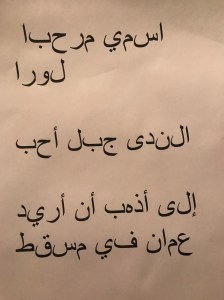 اسمي مرحبا
لورا
الندى جبل أحب
إلى أذهب أن أريد
عمان في مسقط